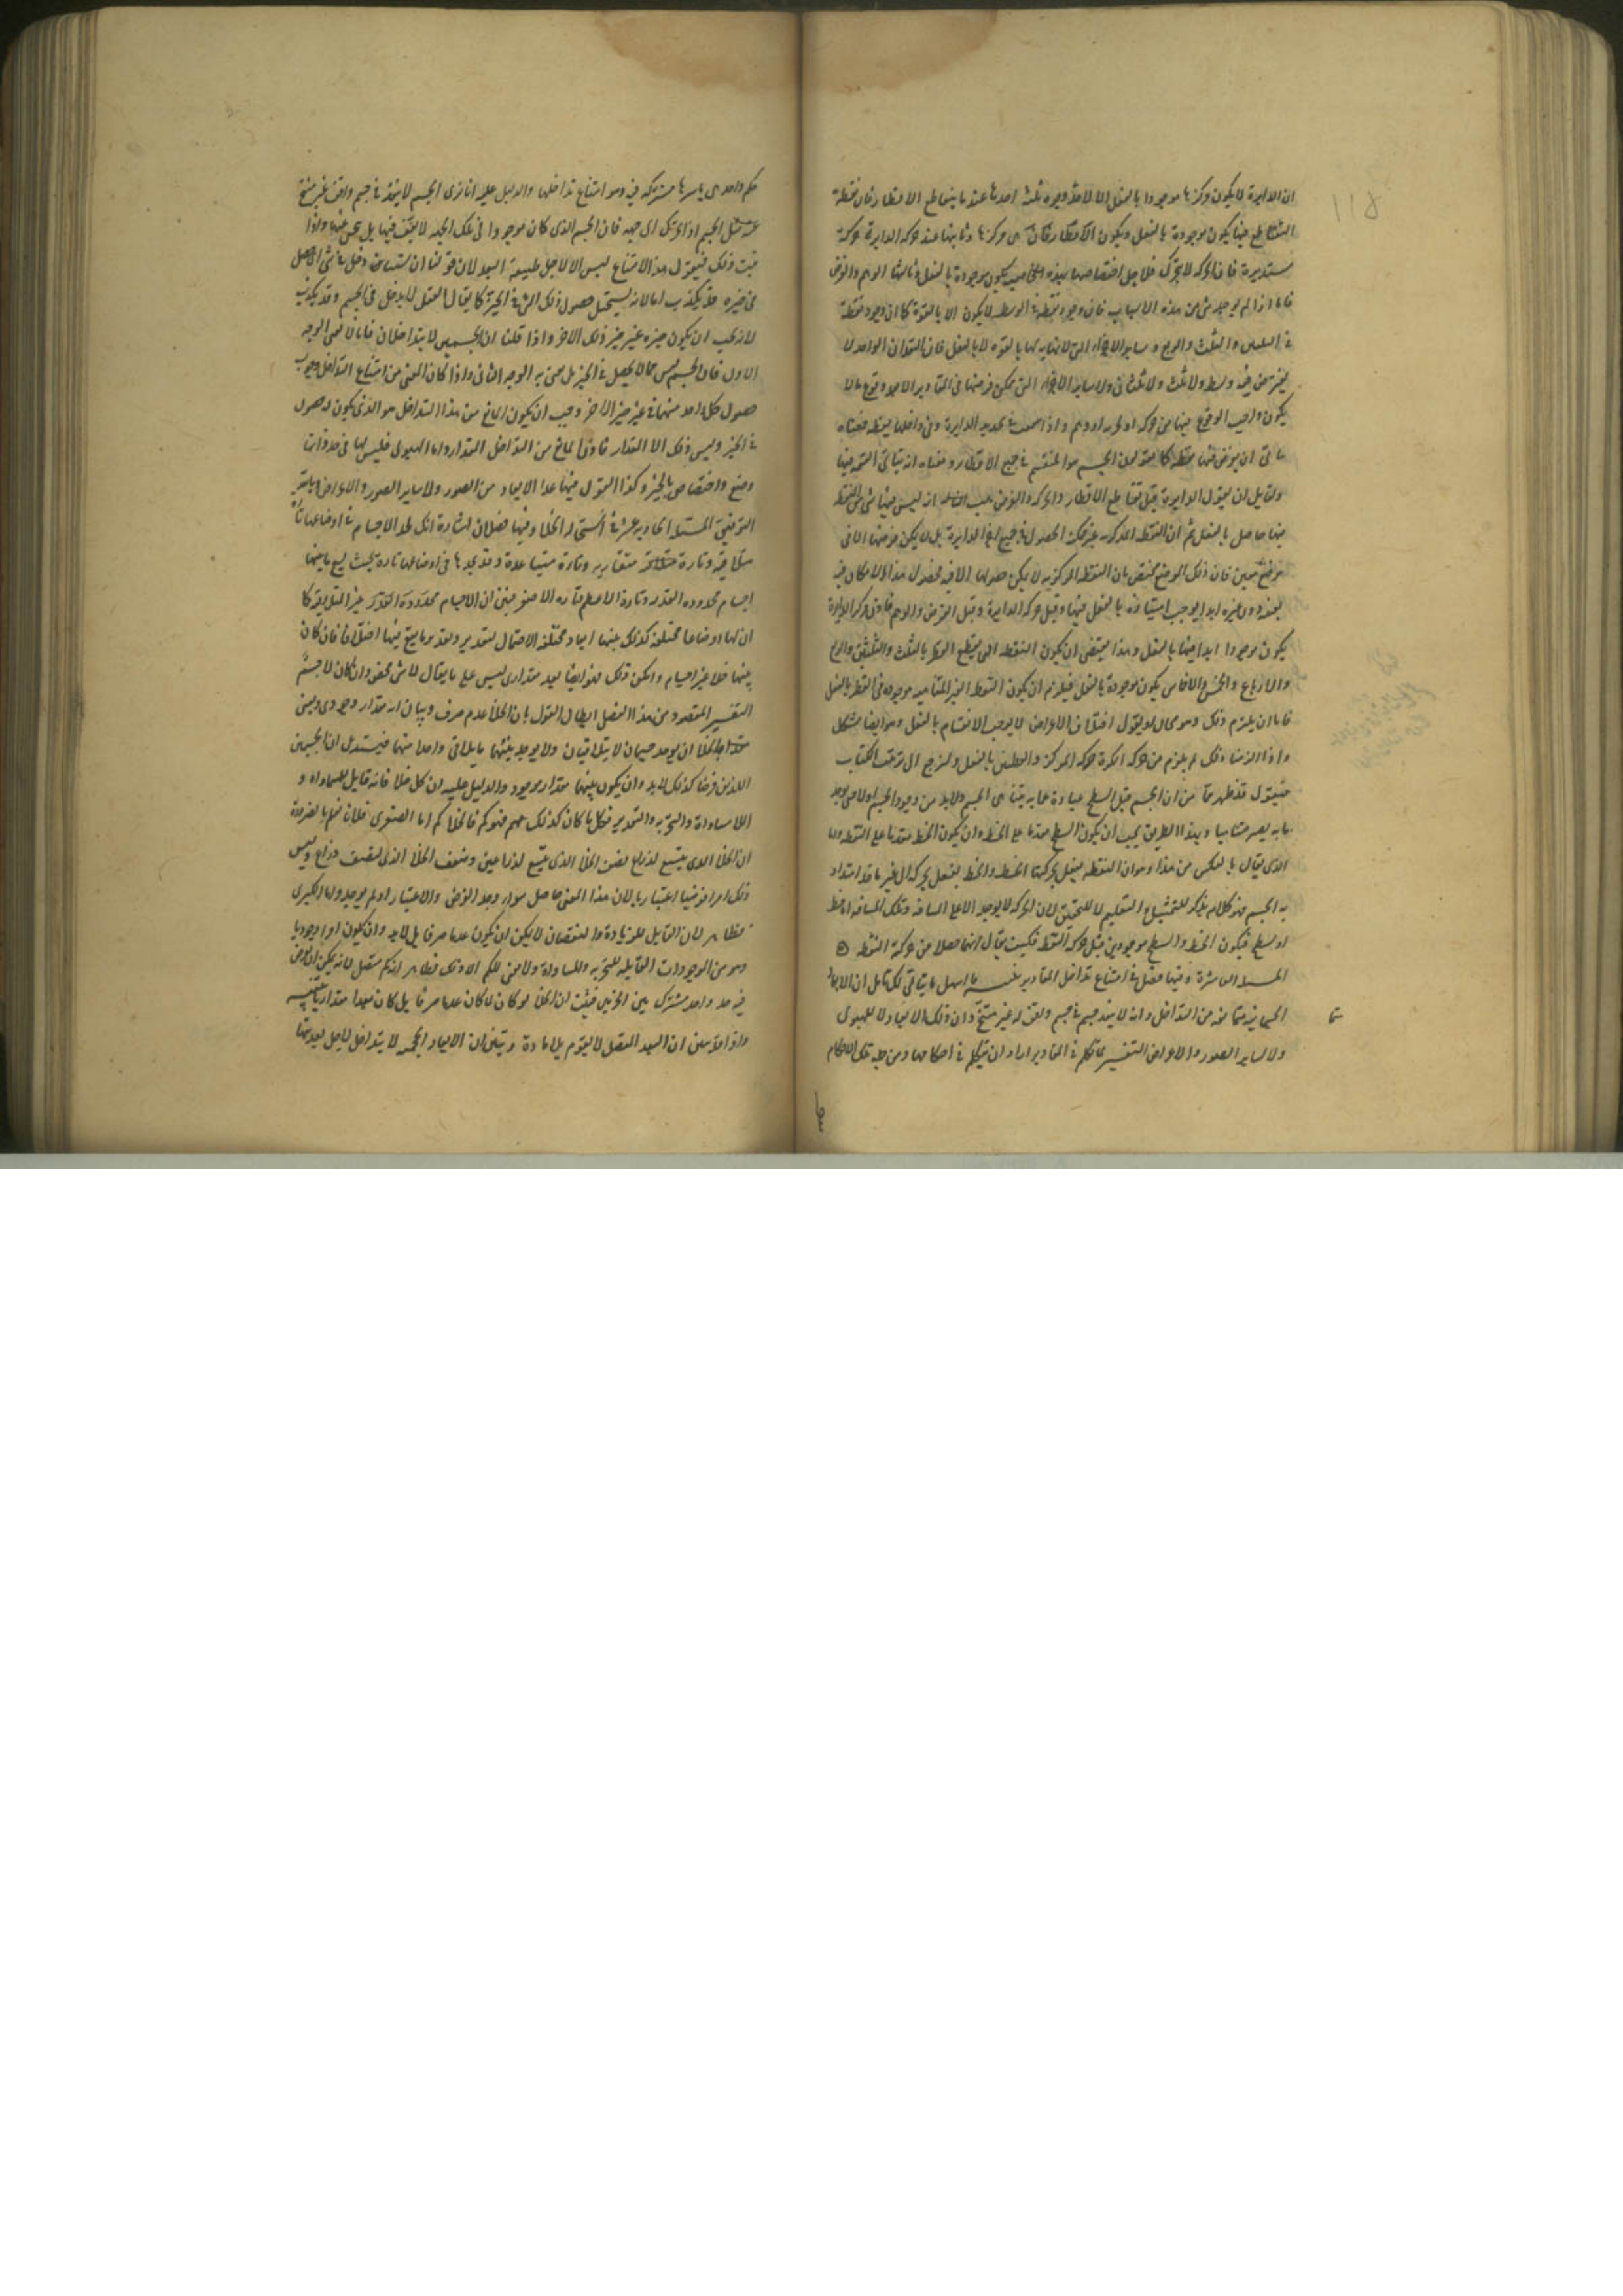 ان الدايرة لا يكون مركزها موجودا بالفعل الا لاحد وجوه ثلثة احدها عند ما يتقاطع الاقطار فان نقطة
التقاطع حينئذ يكون موجودة بالفعل ويكون مركزها وثانيها عند حركة الدايرة حركة
مستديرة فان المركز لا يتحرك فلاجل اختصاصها بهذه يكون موجودة بالفعل وثالثها الوهم والفرض
فاما اذا لم يوجد شي من هذه الاسباب فان وجود نقطة في الوسط لا يكون الا بالقوة كما ان وجود نقطة
في الثلث والربع وساير الاجزاء التي لا نهاية لها بالقوة لا بالفعل فان المقدار الواحد لا
وسط ولا ثلث ولا ولا ساير الاجزاء التي يمكن فرضها في المقادير الا بعد وقوع ما لا
يكون واجب الوقوع فيها من حركة او وهم واذا سمعت في تحديد الدايرة وفي داخلها نقطة فمعناه
يتاتى ان يفرض فيها نقطة كما يقولون الجسم هو المنقسم في جميع الاقطار ومعناه انه يتاتى القسمة فيها
ولقايل ان يقول الدايرة قبل تقاطع الاقطار والحركة والفرض انه ليس فيها شي من النقط
حاصل بالفعل ثم ان النقطة المذكورة غير ممكنة الحصول في جميع الدايرة بل لا يمكن فرضها الا في
موضع معين فان ذلك الموضع مختص بان النقطة المركزية لا يمكن حصولها الا فيه فحصول هذا الامكان فيه
دون غيره ابدا يوجب امتيازه بالفعل فيها وقبل حركة الدايرة وقبل الفرض والوهم مركز الدايرة
يكون موجودا ابدا فيها بالفعل وهذا يقتضي ان يكون النقطة التي يقطع القطر بالثلث والثلثين والربع
والارباع والخمس والاخماس يكون موجودة بالفعل فيلزم ان يكون النقط الغير المتناهية موجودة في القطر بالفعل
فاما ان يلتزم ذلك وهو محال او يقول اختلاف الاعراض لا يوجب الانقسام بالفعل وهو ايضا مشكل
واذا لزمنا ذلك لم يلزم من حركة الكرة حركة المركز والقطبين بالفعل ولنرجع الى ترتيب الكتاب
فنقول قد ظهر مما مر ان الجسم قبل السطح عبارة عما به يتناهى الجسم ولا بد من وجود الجسم اولا حتى يوجد
ما به يصير متناهيا وبهذا الطريق يجب ان يكون السطح متقدما على الخط وان يكون الخط متقدما على النقطة واما
الذي يقال بالعكس من هذا وهو ان النقطة يفعل بحركتها الخط والخط يفعل بحركته الى غير ما قد امتداد
به الجسم فهو كلام يذكر للتمثيل التعليم لا للتحقيق لان الحركة لا يوجد الا على المسافة وتلك المسافة اما خط
او سطح فيكون الخط والسطح موجودين قبل حركة النقطة فكيف يقال انهما حصلا من حركة النقطة
المسئلة العاشرة وفيها فصل في امتناع تداخل المقادير ما اسهل ما يتاتى لك تامل ان الابعاد
الجسمانية متمانعة من التداخل وانه لا ينفذ جسم في جسم واقف له غير متنح وان ذلك للابعاد لا للهيولى
ولا لساير الصور والاعراض التفسير لما تكلم في المقادير اراد ان يتكلم في احكامها ومن جملة تلك الاحكام
حكم واحد باسرها مشتركة فيه وهو امتناع تداخلها والدليل عليه انا نرى الجسم لا ينفذ في جسم واقف غير متنح
عنه مثل الجسم اذا تحرك الى جهة فان الجسم الذي كان موجودا في تلك الجهة لا يقف فيها بل يتنحى عنها واذا
ثبت ذلك فنقول هذا الامتناع ليس الا لاجل طبيعة البعد لان قولنا ان شيئا دخل في شي اي حصل
في حيزه قد يكذب اما لانه يستحيل حصول ذلك الشي في الحيز كما يقال العقل لا يدخل في الجسم وقد يكذب
لانه يجب ان يكون حيزه غير حيز ذلك الاخر واذا قلنا ان الجسمين لا يتداخلان فانا لا نعني الوجه
الاول فان الجسم ليس مما لا يحصل في الحيز بل نعني به الوجه الثاني واذا كان المعنى من امتناع التداخل وجوب
حصول كل واحد منهما في غير حيز الاخر وجب ان يكون المانع من هذا التداخل هو الذي يكون له حصول
في الحيز وليس ذلك الا المقدار فاذن المانع من التداخل المقدار واما الهيولى فليس لها في حد ذاتها
وضع واختصاص بالحيز وكذا القول فيما عدا الابعاد من الصور ولا ساير الصور والاعراض
المسئلة الحادية عشر في الخلا وفيها فصلان اشارة انك تجد الاجسام في اوضاعها تارة
متلاقية وتارة متقاربة وتارة متباعدة وقد تجدها في اوضاعها تارة بحيث يسع ما بينها
اجسام محدودة القدر وتارة الاعظم وتارة الاصغر فبين ان الاجسام محدودة غير المتلاقية كما
ان لها اوضاعا مختلفة كذلك بينها ابعاد مختلفة الاحتمال لتقدير وتقدير ما يقع فيها اختلافا فان كان
بينها خلا غير اجسام وامكن ذلك فهو ايضا بعد مقداري ليس على ما يقال لا شي محض وان كان لا جسم
التفسير المقصود من هذا الفصل ابطال القول بان الخلا عدم صرف وبيان انه مقدار وجودي ونعني
بالخلا ان يوجد جسمان لا يتلاقيان ولا يوجد بينهما ما يلاقي واحدا منهما فيستدل ان الجسمين
اللذين فرضا كذلك لابد وان يكون بينهما مقدار موجود والدليل عليه ان كل خلا فانه قابل للمساواة و
اللامساواة والتجزية والتقدير فكل ما كان كذلك فهو كم فالخلا كم اما الصغرى فلانا نعلم بالضرورة
ان الخلا الذي يتسع لذراع نصف الخلا الذي يتسع لذراعين وضعف الخلا الذي لنصف ذراع وليس
ذلك امرا فرضيا اعتباريا لان هذا المعنى حاصل سواء وجد الفرض والاعتبار او لم يوجد واما الكبرى
فظاهر لان القابل للزيادة والنقصان لا يمكن ان يكون عدما صرفا بل لابد وان يكون امرا وجوديا
وهو من الموجودات القابلة للتجزية وللمساواة ولا معنى للكم الا ذلك فظاهر انه كم متصل لانه يمكن ان يفرض
فيه حد واحد مشترك بين الجزئين فثبت ان الخلا لو كان لما كان عدما صرفا بل كان بعدا مقداريا تنبيه
واذا تبين ان البعد المتصل لا يقوم بلا مادة وتبين ان الابعاد الجسمية لا يتداخل لاجل بعديتها